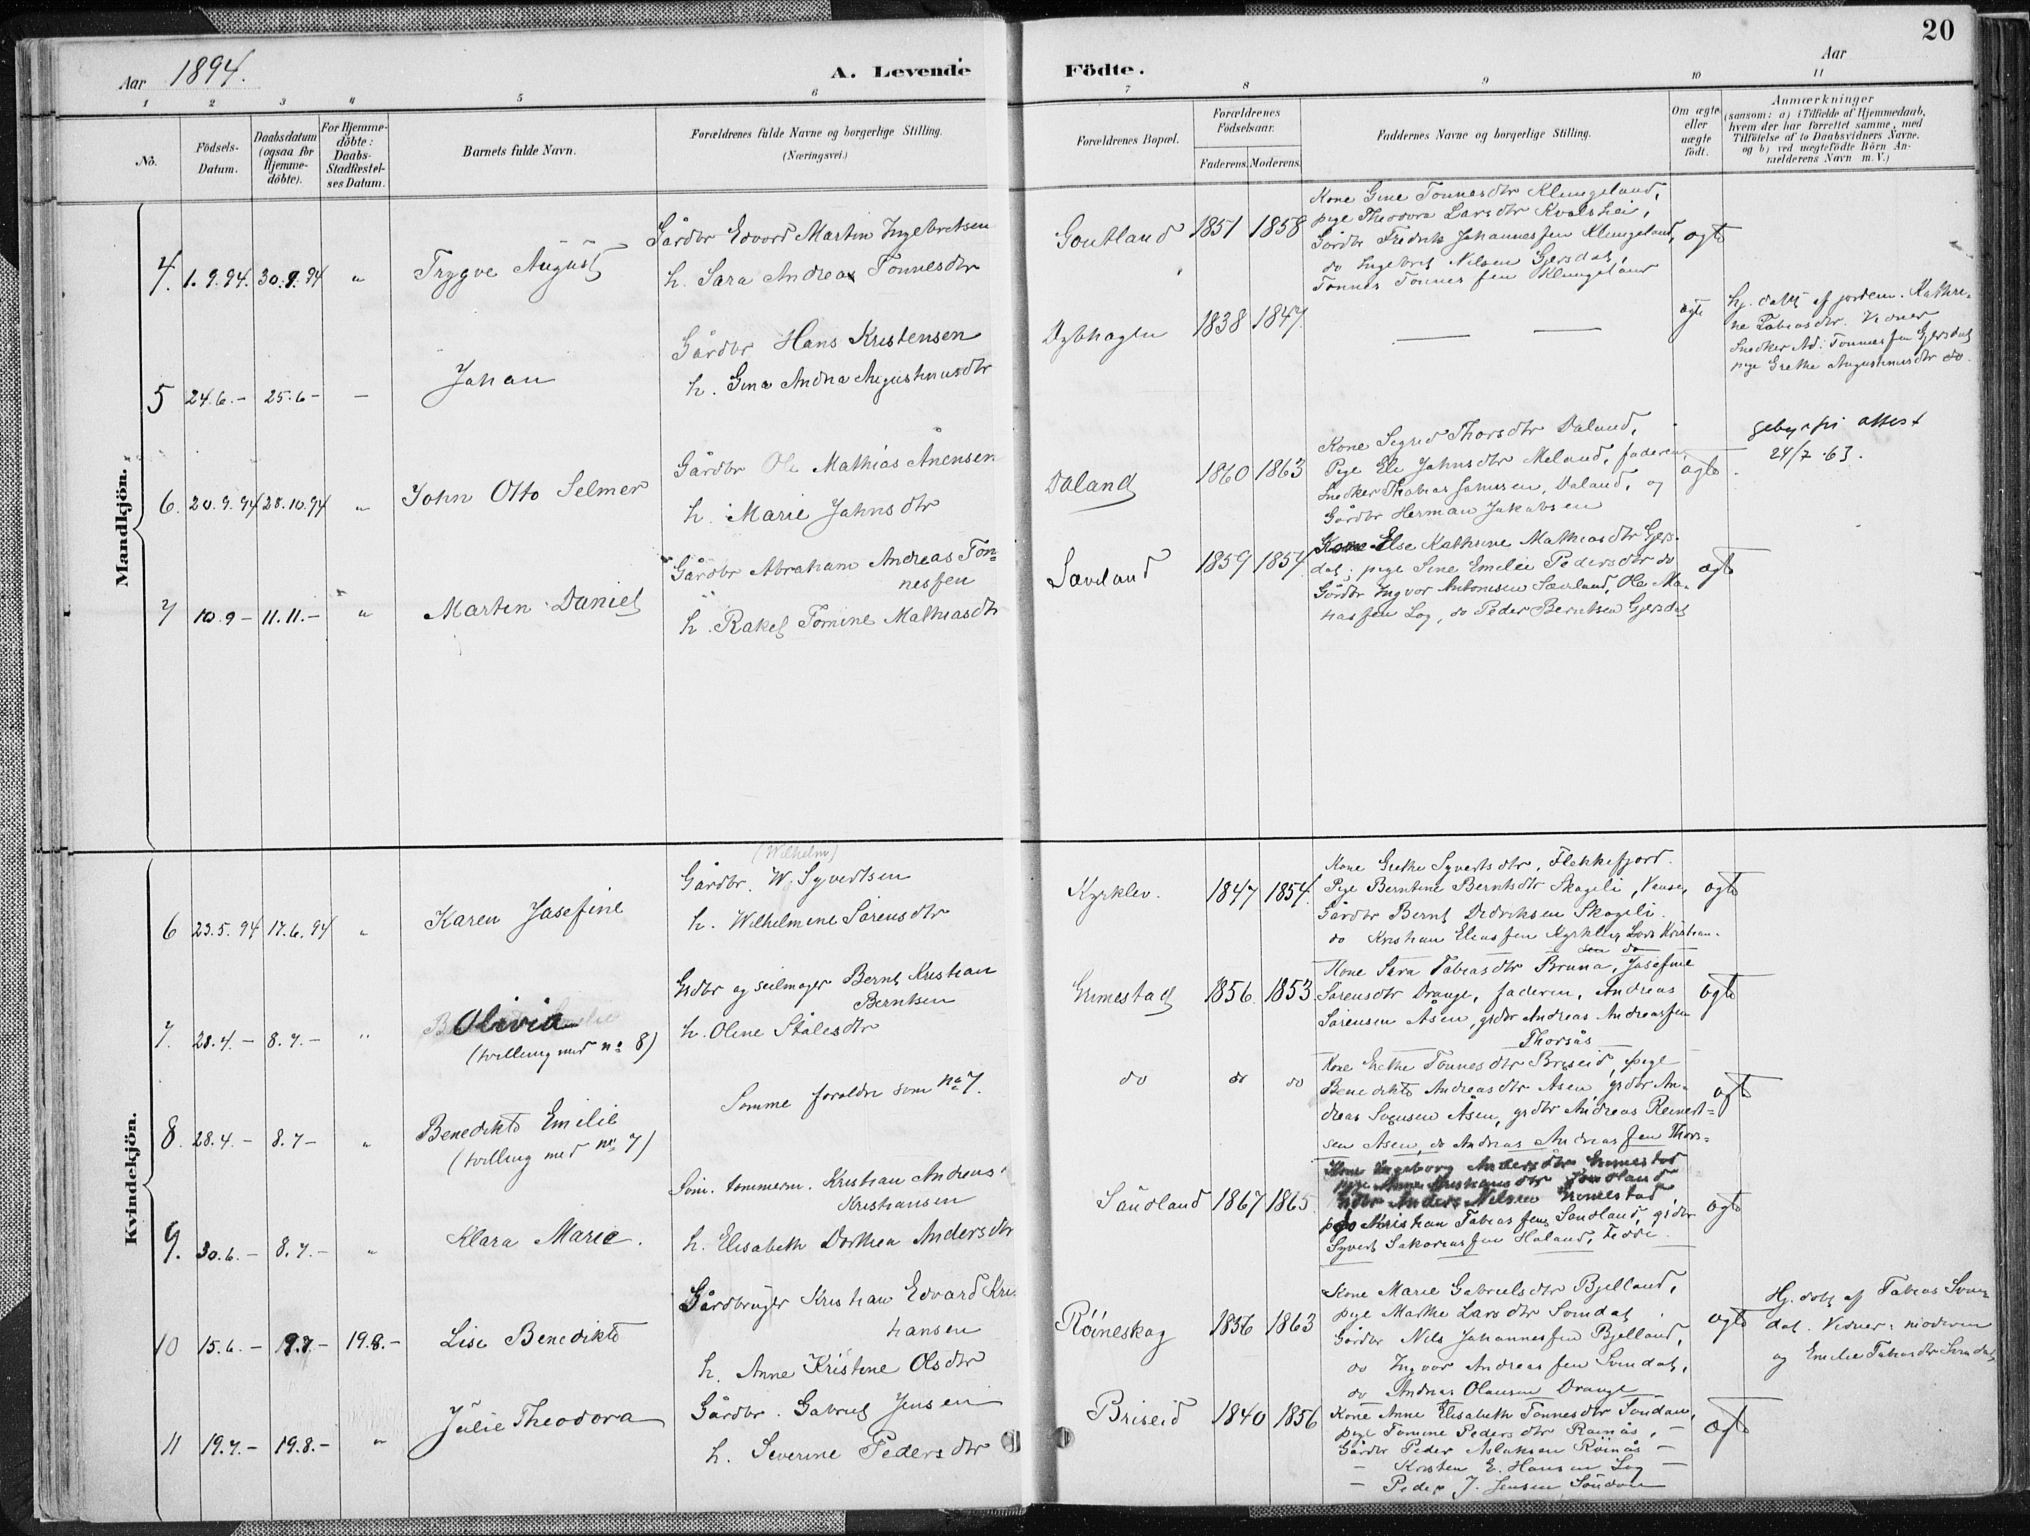 20
Aar 1894.
A. Levende Födte.
Aar
1 2 3 4 5 6 7 8 9 10 11
No.
Födsels-Datum.
Daabsdatum (ogsaa for Hjemme-döbte).
For Hjemme-döbte: Daabs-Stadfæstel-ses Datum.
Barnets fulde Navn.
Forældrenes fulde Navne og borgerlige Stilling.
(Næringsvei.)
Forældrenes Bopæl.
Forældrenes Födselsaar.
Faderens. Moderens.
Faddernes Navne og borgerlige Stilling.
Om ægte eller uægte födt.
Anmærkninger
(saasom: a) i Tilfælde af Hjemmedaab,
hvem der har forrettet samme, med
Tilföielse af to Daabsvidners Navne.
og b) ved uægtefödte Börn An-
mælderens Navn m. V.)
Mandkjön.
4. 1.9.94. 30.9.94 " Trygve August
Gårdbr Edvard Martin Ingebretsen
h. Sara Andrea Tönnesdtr
Goutland 1851 1858
Kone Gine Tönnesdtr Klungeland,
pige Theodora Larsdtr Kvalshei,
Gårdbr Fredrik Johannessen Klungeland,
do Ingebret Nilsen Gjersdal,
Tönnes Tönnessen Klungeland
ægte
5 24.6.- 25.6- - Johan
Gårdbr Hans Kristensen
h. Gina Andrea Augustinusdtr
Dybhagen 1838 1847
ægte
hj. döbt af jordem. Kathri-
ne Tobiasdtr. Vidner
Snedker Ad. Tönnessen Gjersdal
pige Grethe Augustinusdtr do.
6. 20.9.94 28.10.94 " John Otto Selmer
Gårdbr Ole Mathias Ånensen
h. Marie Jahnsdtr
Daland 1860 1863
Kone Sigred Thorsdtr Daland,
Pige Eli Jahnsdtr Meland, faderen
Snedker Thobias Jahnsen, Daland, og
Gårdbr Herman Jakobsen
ægte
gebyrfri attest
24/7 63.
7 10.9- 11.11.- " Martin Daniel
Gårdbr Abraham Andreas Tön-
nessen
h. Rakel Tomine Mathiasdtr
Sæveland 1859 1854
Kone Else Kathrine Mathiasdtr Gjers-
dal, pige Sine Emilie Pedersdtr do
Gårdbr Ingvor Antonisen Sævland, Ole Ma-
thiassen Log, do Peder Berntsen Gjersdal
ægte
Kvindekjön.
6 23.5.94 17.6.94 " Karen Josefine
(Wilhelm)
Gårdbr. W. Syvertsen
h. Wilhelmine Sörensdtr
Kyrklev. 1847 1854.
Kone Grethe Syvertsdtr, Flekkefjord.
Pige Berntine Berntsdtr Skogeli, Vanse,
Gårdbr Bernt Didriksen Skogeli.
do Kristian Eliassen Kyrklev, Lars Kristian-
sen do
ægte
7. 28.4.- 8.7.- " Olivia
(tvilling med no 8)
Grdbr og seilmager Bernt Kristian
Berntsen
h. Oline Stålesdtr
Grimestad 1856. 1853
Kone Sara Tobiasdtr Bruna, Josefine
Sörensdtr Drange, faderen, Andreas
Sörensen Åsen, grdbr Andreas Andreassen
Thorsås
ægte
8. 28.4.- 8.7- " Benedikte Emilie
(tvilling med no 7)
Samme foreldre som no 7.
do do do
Kone Grethe Tönnesdtr Briseid, pige
Benedikte Andreasdtr Åsen, grdbr An-
dreas Sörensen Åsen, grdbr Andreas Reinert-
sen Åsen, do Andreas Andreassen Thors-
ægte
9. 30.6.- 8.7.- " Klara Marie.
Söm. tömmerm. Kristian Andreas
Kristiansen
h. Elisabeth Dorthea Andersdtr
Sandland 1867 1865
Kone Ingeborg Andersdtr Grimestad
pige Anne Kristiansdtr Sandland
Grdbr Anders Nilsen Grimestad
do Kristian Tobiassen Sandland, grdbr
Syvert Sakariassen Haland, Fede.
ægte
10 15.6.- 19.7.- 19.8.- Lise Benedikte
Gårdbruger Kristian Edvard Kris-
tiansen
h. Anne Kristine Olsdtr
Röineskog 1856 1863
Kone Marie Gabrielsdtr Bjelland,
pige Marthe Larsdtr Svindal,
Gårdbr Nils Johannessen Bjelland,
do Ingvor Andreassen Svindal,
do Andreas Olausen Drange
ægte
Hj. döbt af Tobias Svin-
dal. Vidner: moderen
og Emilie Tobiasdtr Svindal
11 19.7.- 19.8.- " Julie Theodora
Gårdbr. Gabriel Jensen
h. Severine Pedersdtr
Briseid 1840 1856
Kone Anne Elisabeth Tönnesdtr Söndan,
pige Tomine Pedersdtr Röinås,
Gårdbr Peder Aslaksen Röinås
- Kristen E. Hansen Log
- Peder J. Jensen Söndan
ægte